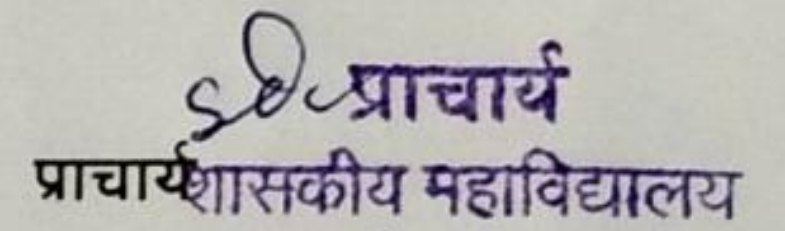 प्राचार्य
प्राचार्य शासकीय महाविद्यालय